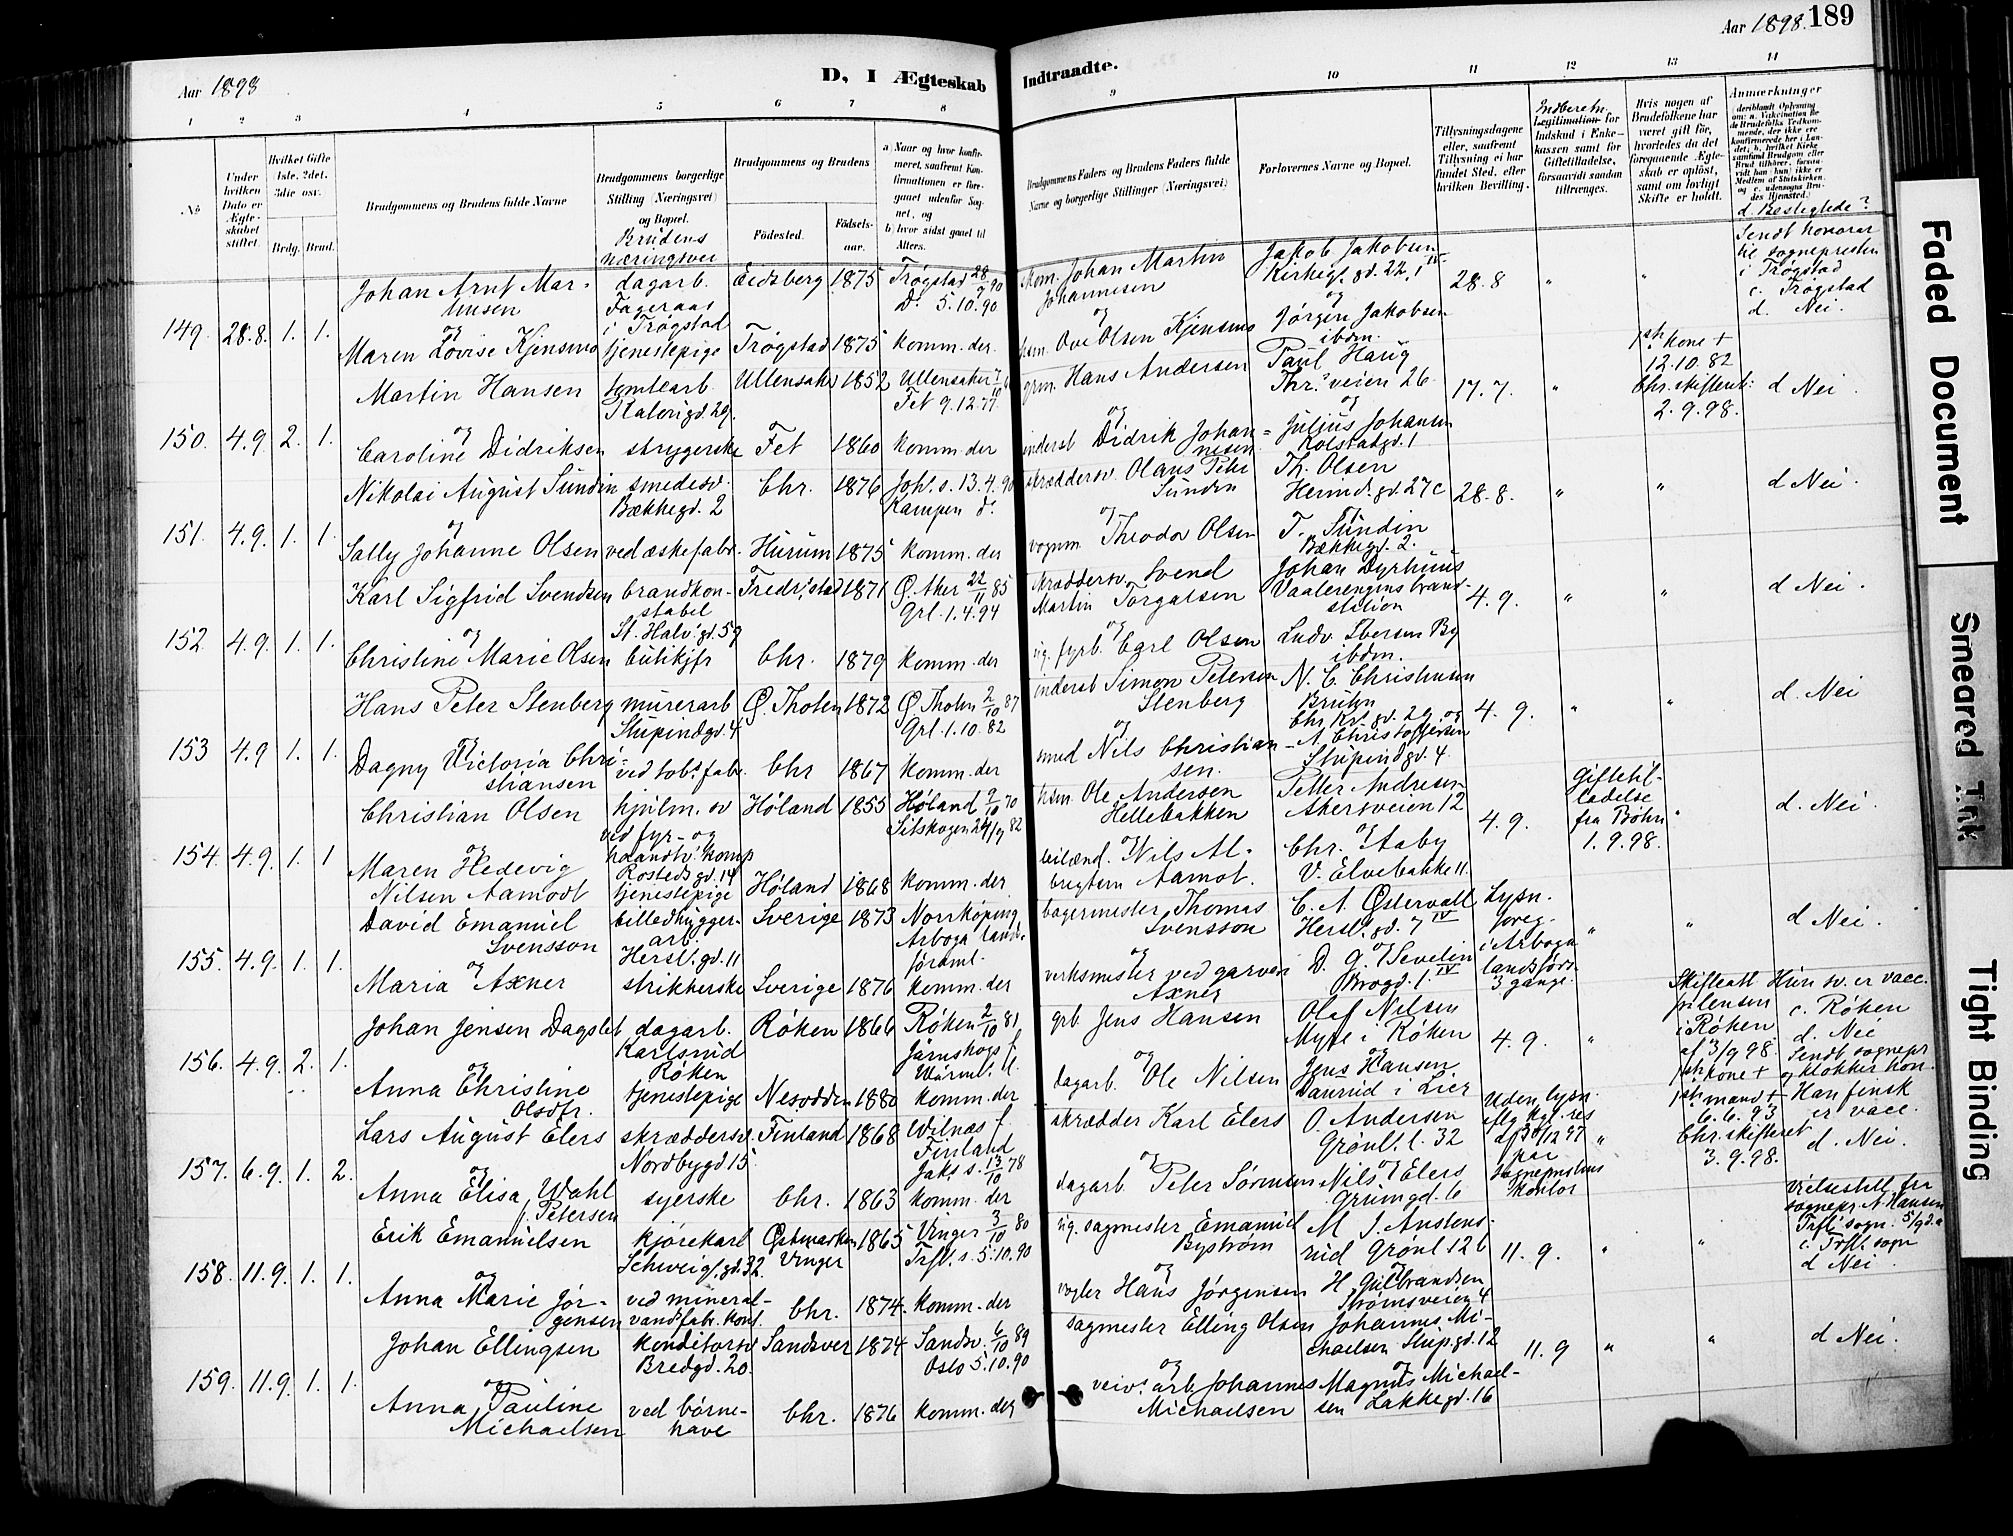 Aar 1898
D, I Ægteskab
Indtraadte.
Aar 1898. 189
1 2 3 4 5 6 7 8 9 10 11 12 13 14
No
Under hvilken Dato er Ægteskabet stiftet.
Hvilket Gifte 1ste. 2det. 3die osv.
Brdg. Brud.
Brudgommens og Brudens fulde Navne
Brudgommens borgerlige Stilling (Næringsvei) og Bopæl.
Brudens næringsvei
Brudgommens og Brudens
Fødested. Fødselsaar.
a) Naar og hvor konfirmeret, saafremt Konfirmationen er foregaaet udenfor Sognet, og
b) hvor sidst gaaet til Alters.
Brudgommens Faders og Brudens Faders fulde Navne og borgerlige Stillinger (Næringsvei)
Forlovernes Navne og Bopæl.
Tillysningsdagene eller, saafremt Tillysning ei har fundet Sted, efter hvilken Bevilling.
Indberetn.
Legitimation for Indskud i Enkekassen samt for Giftetilladelse, forsaavidt saadan tiltrænges.
Hvis nogen af Brudefolkene har været gift før, hvorledes da det foregaaende Ægteskab er opløst, samt om lovligt Skifte er holdt.
Anmærkninger
d. Beslegtede?
149. 28.8. 1. 1.
Johan Arnt Martinsen
dagarb. Fageraas i Trøgstad
Eidsberg 1875
Trøgstad 28/9 90
Do 5.10.90
Johan Martin Johannesen
Jakob Jakobsen Kirkeg. gd. 22, IV
28.8 " "
Sendt honorar til sognepresten i Trøgstad
c. Trøgstad
d. Nei.
og
Maren Lovise Kjensmo
tjenestepige
Trøgstad 1875
komm. der
Ove Olsen Kjensmo
Jørgen Jakobsen ibdm.
150. 4.9. 2. 1.
Martin Hansen
tomtearb.
Ullensaker 1852
Fet 9.12.77
grm. Hans Andersen
Paul Haug
Thr. veien 26
17.7. "
1ste kone +
12.10.82
Chr. skifteret:
2.9.98.
d Nei.
og
Caroline Didriksen
strygerske
Fet 1860
komm. der
inderst Didrik Johannesen
Julius Johansen
Kolstadgd. 1
151. 4.9. 1. 1.
Nikolai August Sundin
smedesv.
Bækkegd. 2
Chr. 1876
Joh. s. 13.4.90
Kampen do
skræddersv. Olaus Peter Sundin
Th. Olsen
Heimd. gd. 27c
28.8. " "
d Nei.
og
Sally Johanne Olsen
ved æskefabr.
Hurum 1875
komm. der
vognm. Theodor Olsen
T. Sundin
Bækkegd. 2.
152 4.9. 1. 1.
Karl Sigfrid Svendsen
brandkonstabel
St. Halv. gd. 59
Fredr.stad 1871
Ø. Aker 22/11 85
Grl. 1.4.94
skræddersv. Svend Martin Torgalsen
Johan Dyrhuus
Vaalerengens brandstation
4.9. " "
d Nei.
og
Christine Marie Olsen
butikjfr
Chr. 1879
komm. der
fyrb. Carl Olsen
Ludv. Ibersen By
ibdm.
153 4.9 1. 1.
Hans Peter Stenberg
murerarb
Stupindgd. 4
Ø. Thoten 1872
Ø. Thoten 2/10 87
Grl. 1.10.82
inderst Simon Petersen Stenberg
N. C. Christensen
Bruhn
Chr. Kr. gd. 29 og
4.9. " "
d. Nei
og
Dagny Victoria Christiansen
ved tob. fabr.
Chr 1867
komm. der
smed Nils Christiansen.
A. Christoffersen
Stupindgd. 4.
154. 4.9. 1. 1
Christian Olsen
hjulm. sv
ved fyr- og
Høland 1855
Høland 9/10 70
Ole Andersen Hellebakken
Petter Andresen
Akersveien 12
4.9.
Giftetilladelse
fra Bøhn
1.9.98.
"
d. Nei.
og
Maren Hedevig Nilsen Aamodt
Rosteds gd. 14
tjenestepige
Høland 1868
komm. der
Nils Albregtsen Aamot.
Chr. Aaby
V. Elvebakke 11.
155. 4.9. 1. 1.
David Emanuel Svensson
billedhugger-arb.
Hersl. gd. 11
Sverige 1873
Norrköping
Arboga landsförsaml.
bagermester Thomas Svensson
C. A. Østervall
Hersl. gd. 7 IV
Lysn. foreg. i Arboga landsförs. 3 gange.
" "
d Nei.
og
Maria Axner
strikkerske
Sverige 1876
komm. der
verksmester ved garveri Axner
D. G. Sevelin
Brogd. 1. IV
156. 4.9. 2. 1.
Johan Jensen Dagslet
dagarb.
Karlsrud
Røken
Røken 1866
Røken 2/10 81
grb. Jens Hansen
Olaf Nilsen
Myre i Røken
4.9. "
Skifteatt
i Røken
af 3/9 98.
1ste kone +
Hun sv. er vacc.
c. Røken
d. Nei
Sendt sognepr
og klokker hon.
og
Anna Christine Olsdtr.
tjenestepige
Nesodden 1880
komm. der
dagarb. Ole Nilsen
Jens Hansen
Daurud i Lier
157. 6.9. 1. 2.
Lars August Elers
skræddersv.
Nordbygd 15
Finland 1868
Wilnæs f.
Finland
skrædder Karl Elers
O. Andersen
Grønl. l. 32
Uden lysn.
eftr kgl. res
af 30/12 97
paa
sognepræstens
kontor
"
1ste mand +
6.6.93
Chr. skifteret
3.9.98.
Han finsk
er vacc.
d. Nei.
og
Anna Elisa Wahl f. Petersen
syerske
Chr. 1863
Jak. s. 13/10 78
komm. der
dagarb Peter Sørensen
Nils Elers
Grumgd. 6
158. 11.9. 1. 1.
Erik Emanuelsen
kjørekarl
Schweig. gd. 32.
Østmarken
Vinger
1865
Vinger 3/10 80
Trfl. s. 5.10.90
sagmester Emanuel Byström
M. J. Anstensrud Grønl 12 b
11.9. " "
Vielsestill. fra
sognepr. A. Hansen
Trfl. sogn. 5/9 d.a
c. Trfl. sogn
d Nei.
og
Anna Marie Jørgensen
ved mineralvandfabr. kont.
Chr. 1874.
komm. der
vogter Hans Jørgensen
H. Gulbrandsen
Strømsveien 4
159. 11.9. 1. 1.
Johan Ellingsen
konditorsv
Bredgd. 20.
Sandsver 1874
Sandsv. 6/10 89
Oslo 5.10.90
sagmester Elling Olsen
Johannes Michaelsen Stup. gd. 12
11.9 " "
d Nei.
og
Anna Pauline Michaelsen
ved børnehave
Chr. 1876
komm. der
veiv. arb. Johannes Michaelsen
Magnus Michaelsen Lakkegd. 16
Faded Document
Smeared Ink
Tight Binding